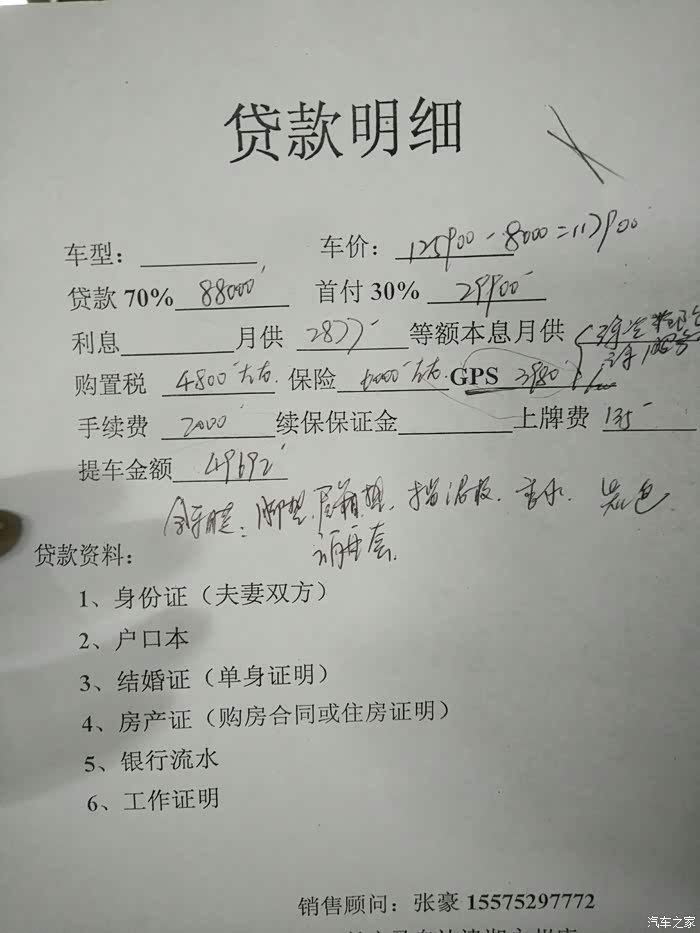 贷款明细
车型： 车价：125900-8000=117900
贷款 70% 88000 首付 30% 29900
利息 月供 2877 等额本息月供
购置税 4800左右 保险 6000左右 GPS 3980
手续费 2000 续保保证金 上牌费 135
提车金额 49692
脚垫. 尾箱垫. 挡泥板. 香水.
贷款资料：
1、身份证（夫妻双方）
2、户口本
3、结婚证（单身证明）
4、房产证（购房合同或住房证明）
5、银行流水
6、工作证明
销售顾问：张豪 15575297772
汽车之家